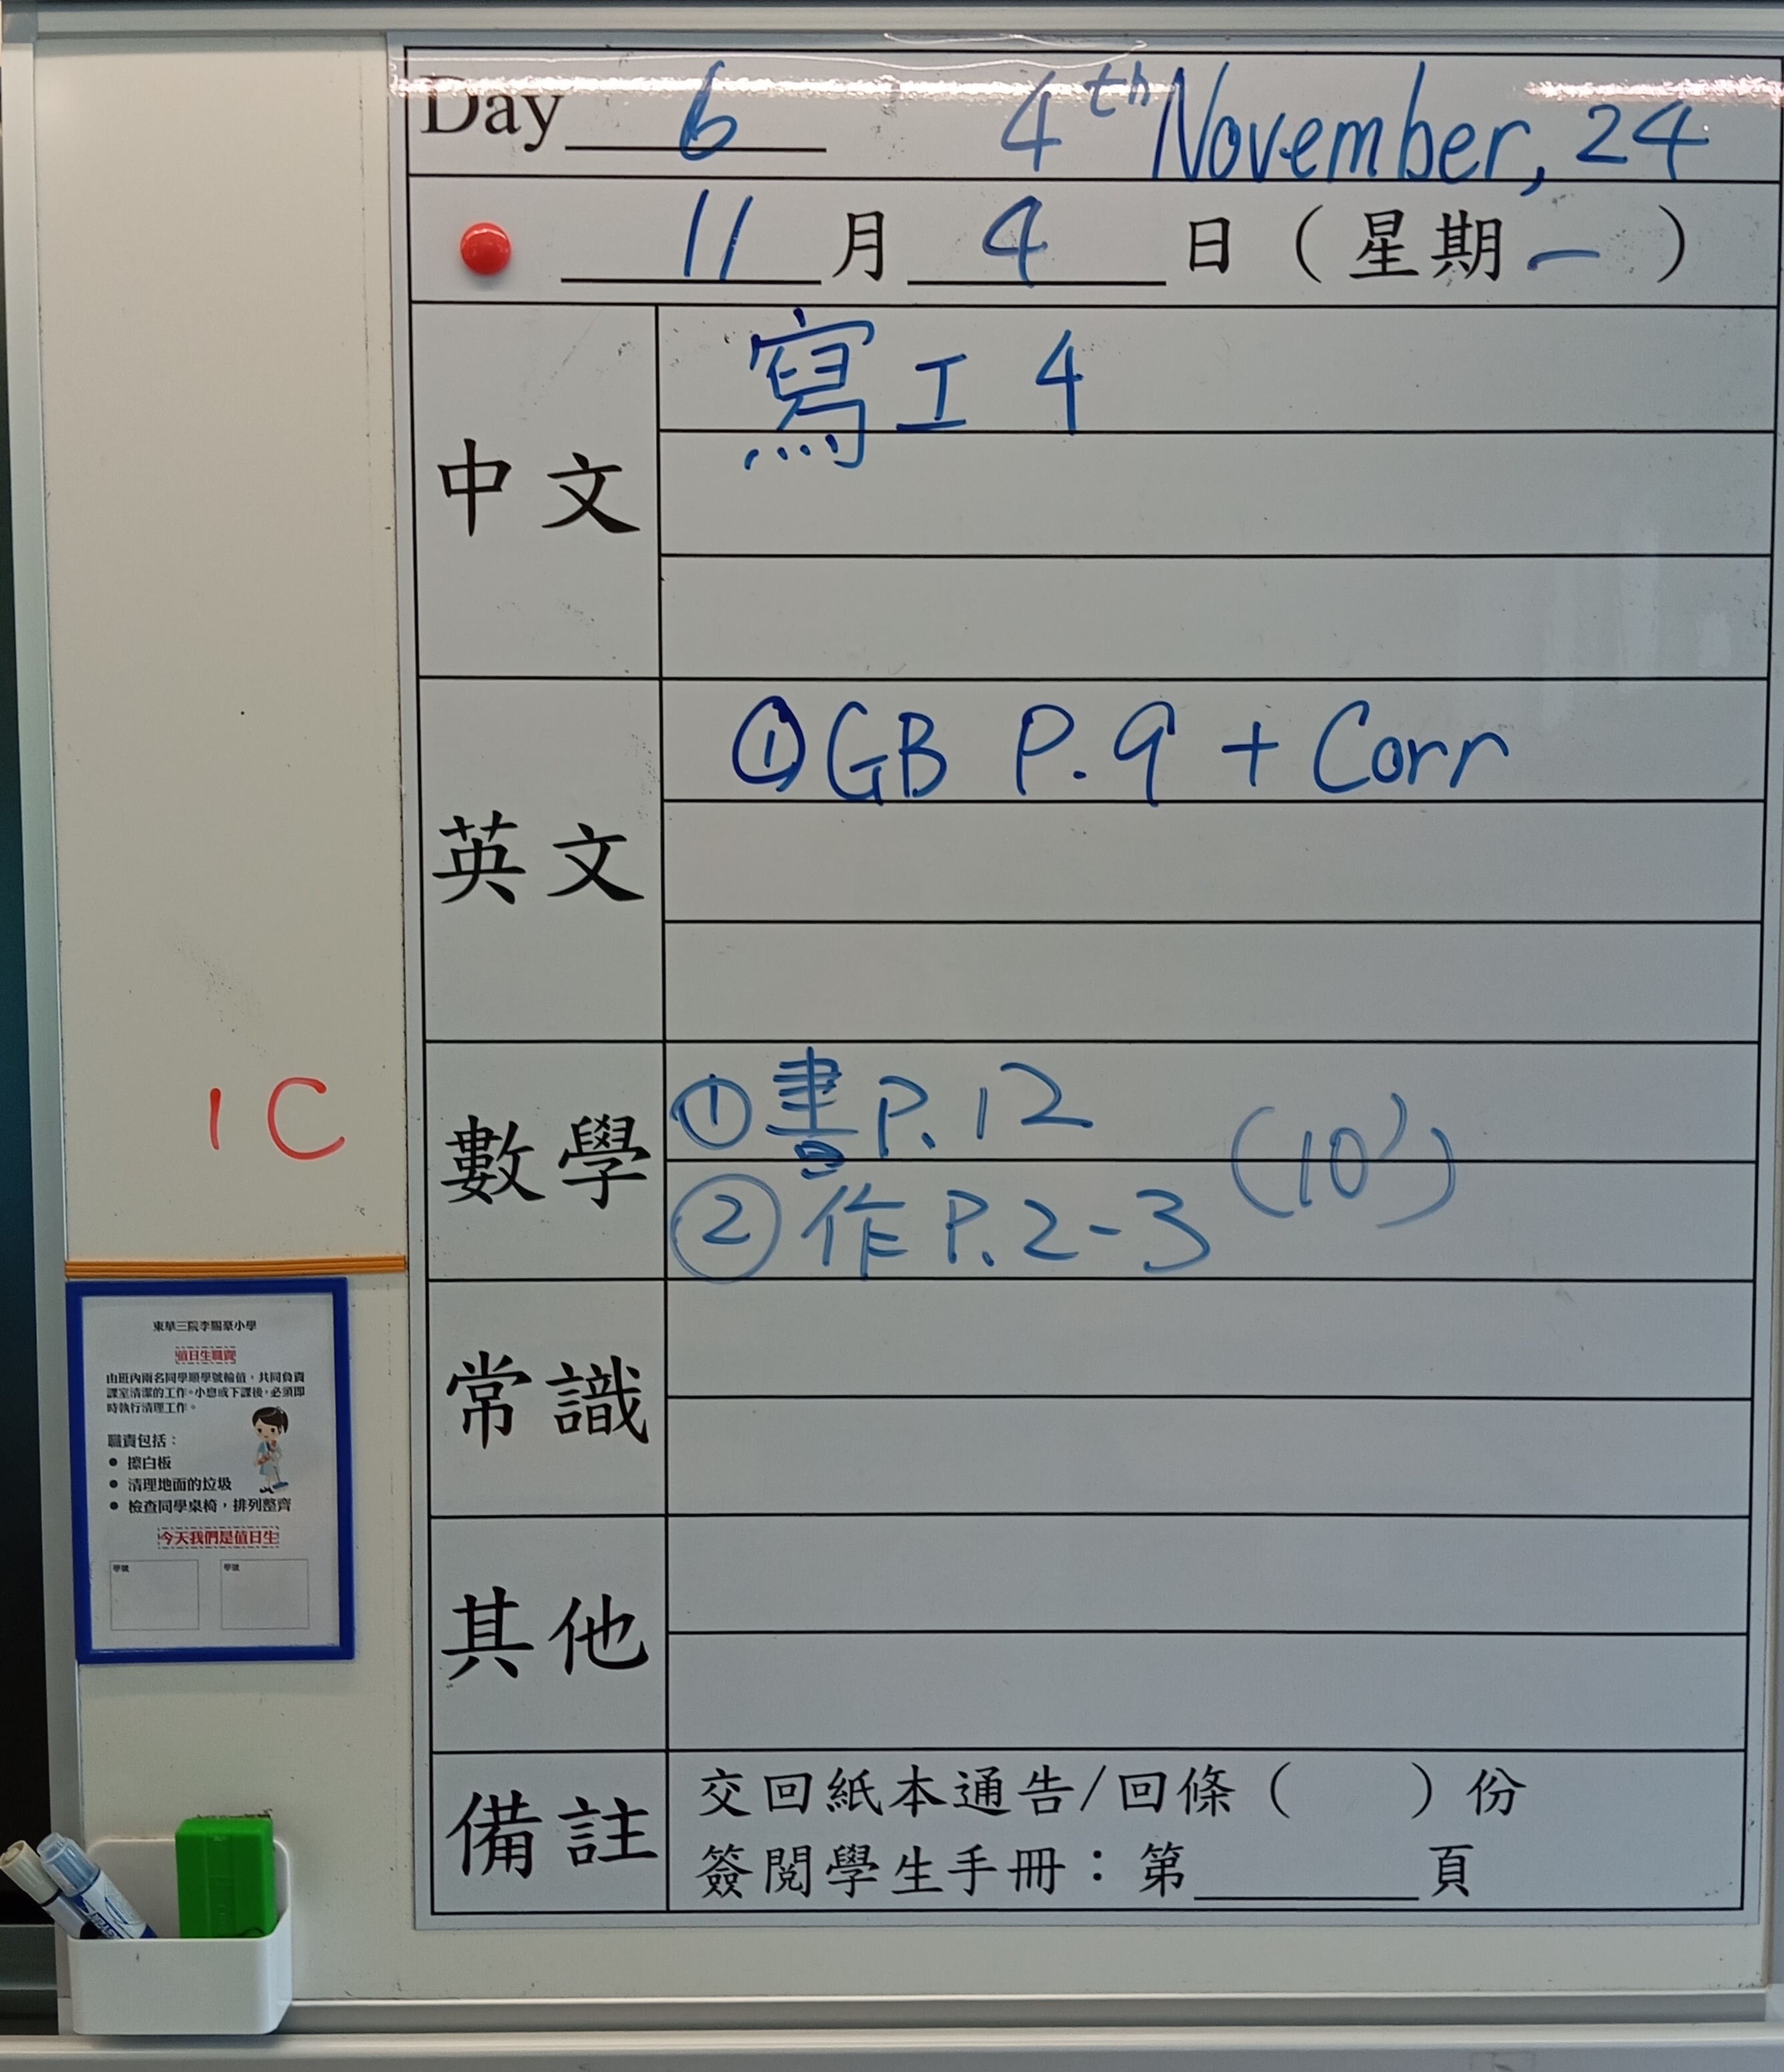 Day 6 4th November, 24
11 月 4 日 (星期一)
中文
寫工 4
英文
① GB P.9 + Corr
數學
① 書 P.12
② 作 P.2-3 (10')
常識
其他
備註
交回紙本通告/回條 ( ) 份
簽閱學生手冊：第______頁
1C
東華三院李賜豪小學
值日生職責
由班內兩名同學順學號輪值，共同負責
課室清潔的工作。小息或下課後，必須即
時執行清理工作。
職責包括：
● 擦白板
● 清理地面的垃圾
● 檢查同學桌椅，排列整齊
今天我們是值日生
學號 學號